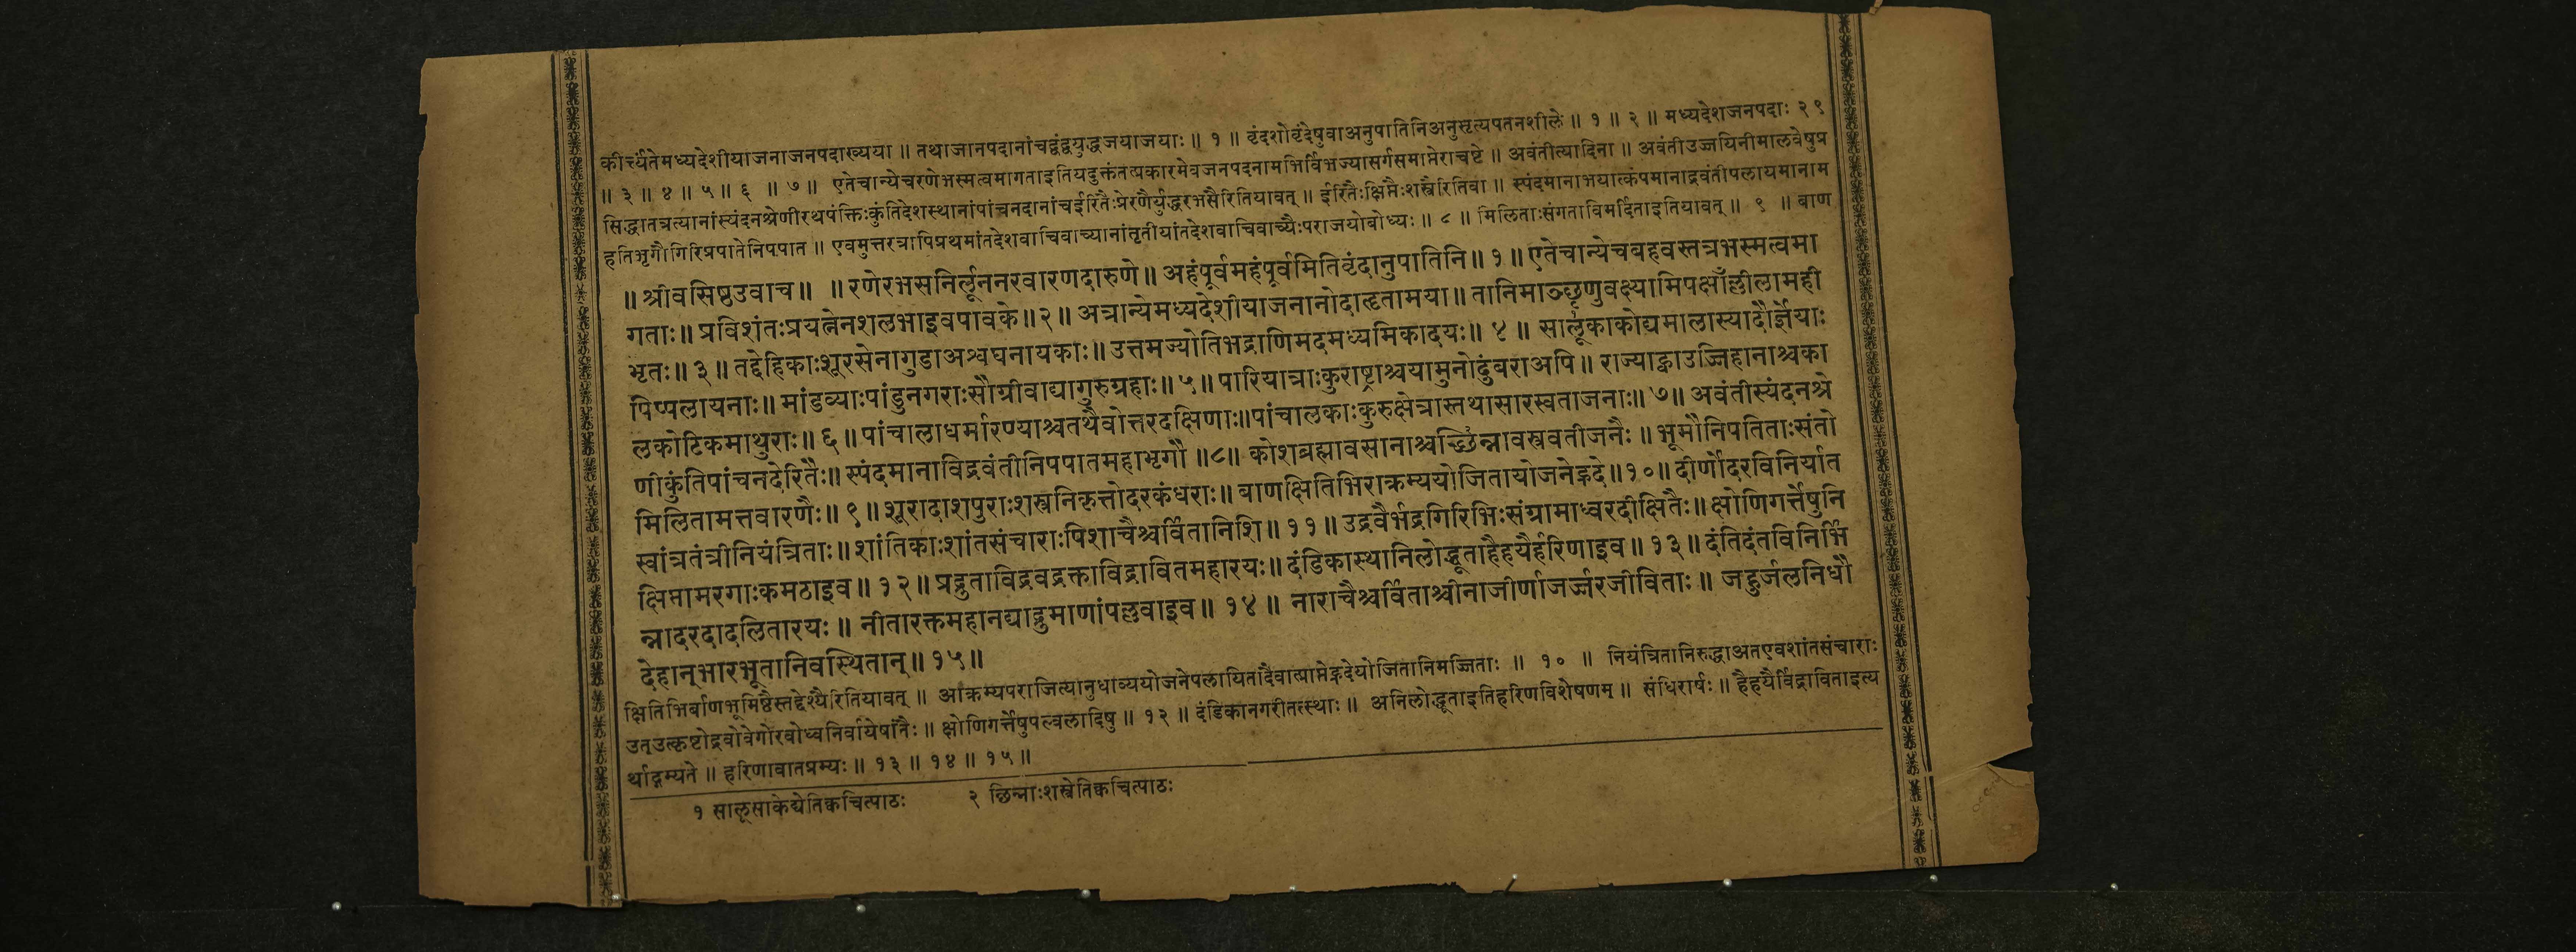 कीर्त्त्यंतेमध्यदेशीयाजनाजनपदाख्यया ॥ तथाजानपदानांचद्वंद्वयुद्धजयाजयाः ॥ १ ॥ वृंदशोवृंदेषुवाअनुपातिनिअनुसृत्यपतनशीले ॥ १ ॥ २ ॥ मध्यदेशजनपदाः २९
॥ ३ ॥ ४ ॥ ५ ॥ ६ ॥ ७ ॥ एतेचान्येचरणेभस्मत्वमागताइतियदुक्तंतत्प्रकारमेवजनपदनामभिर्विभज्यासर्गसमाप्तेराचष्टे ॥ अवंतीत्यादिना ॥ अवंतीउज्जयिनीमालवेषुप्र
सिद्धातत्रत्यानांस्यंदनश्रेणीरथपंक्तिःकुंतिदेशस्थानांपांचनदानांचईरितैःप्रेरणैर्युद्धरभसैरितियावत् ॥ ईरितैःक्षिप्तैःशस्त्रैरितिवा ॥ स्पंदमानाभयात्कंपमानाद्रवंतीपलायमानाम
हतिभृगौगिरिप्रपातेनिपपात ॥ एवमुत्तरत्रापिप्रथमांतदेशवाचिवाच्यानांतृतीयांतदेशवाचिवाच्यैःपराजयोबोध्यः ॥ ८ ॥ मिलिताःसंगताविमर्दिताइतियावत् ॥ ९ ॥ बाण
॥ श्रीवसिष्ठउवाच ॥ ॥ रणेरभसनिर्लूननरवारणदारुणे ॥ अहंपूर्वमहंपूर्वमितिवृंदानुपातिनि ॥ १ ॥ एतेचान्येचबहवस्तत्रभस्मत्वमा
गताः ॥ प्रविशंतःप्रयत्नेनशलभाइवपावके ॥ २ ॥ अत्रान्येमध्यदेशीयाजनानोदाहृतामया ॥ तानिमाञ्छृणुवक्ष्यामिपक्षाँल्लीलामही
भृतः ॥ ३ ॥ तद्देहिकाःशूरसेनागुडाअश्वघनायकाः ॥ उत्तमज्योतिभद्राणिमदमध्यमिकादयः ॥ ४ ॥ सालूंकाकोद्यमालास्यादौर्ज्ञेयाः
पिप्पलायनाः ॥ मांडव्याःपांडुनगराःसौग्रीवाद्यागुरुग्रहाः ॥ ५ ॥ पारियात्राःकुराष्ट्राश्चयामुनोदुंबराअपि ॥ राज्याह्वाउज्जिहानाश्चका
लकोटिकमाथुराः ॥ ६ ॥ पांचालाधर्मारण्याश्चतथैवोत्तरदक्षिणाः ॥ पांचालकाःकुरुक्षेत्रास्तथासारस्वताजनाः ॥ ७ ॥ अवंतीस्यंदनश्रे
णीकुंतिपांचनदेरितैः ॥ स्पंदमानाविद्रवंतीनिपपातमहाभृगौ ॥ ८ ॥ कोशब्रह्मावसानाश्चच्छिन्नावस्त्रवतीजनैः ॥ भूमौनिपतिताःसंतो
मिलितामत्तवारणैः ॥ ९ ॥ शूरादाशपुराःशस्त्रनिकृत्तोदरकंधराः ॥ बाणक्षितिभिराक्रम्ययोजितायोजनेह्रदे ॥ १० ॥ दीर्णोदरविनिर्यात
स्वांत्रतंत्रीनियंत्रिताः ॥ शांतिकाःशांतसंचाराःपिशाचैश्चर्वितानिशि ॥ ११ ॥ उद्रवैर्भद्रगिरिभिःसंग्रामाध्वरदीक्षितैः ॥ क्षोणिगर्त्तेषुनि
क्षिप्तामरगाःकमठाइव ॥ १२ ॥ प्रद्रुताविद्रवद्रक्ताविद्रावितमहारयः ॥ दंडिकास्थानिलोद्धूताहैहयैर्हरिणाइव ॥ १३ ॥ दंतिदंतविनिर्भि
न्नादरदादलितारयः ॥ नीतारक्तमहानद्याद्रुमाणांपल्लवाइव ॥ १४ ॥ नाराचैश्चर्विताश्चीनाजीर्णाजर्ज्जरजीविताः ॥ जहुर्जलनिधौ
देहान्भारभूतानिवस्थितान् ॥ १५ ॥
क्षितिभिर्बाणभूमिष्ठैस्तद्देश्यैरितियावत् ॥ आक्रम्यपराजित्यानुधाव्ययोजनेपलायितादैवात्प्राप्तेह्रदेयोजितानिमज्जिताः ॥ १० ॥ नियंत्रितानिरुद्धाअतएवशांतसंचाराः
उत्उत्कृष्टोद्रवोवेगोरवोध्वनिर्वायेषांतैः ॥ क्षोणिगर्त्तेषुपल्वलादिषु ॥ १२ ॥ दंडिकानगरीतत्स्थाः ॥ अनिलोद्धूताइतिहरिणविशेषणम् ॥ संधिरार्षः ॥ हैहयैर्विद्राविताइत्य
र्थाद्गम्यते ॥ हरिणावातप्रम्यः ॥ १३ ॥ १४ ॥ १५ ॥
१ सालूसाकेद्येतिक्वचित्पाठः २ छिन्नाःशस्त्रेतिक्वचित्पाठः